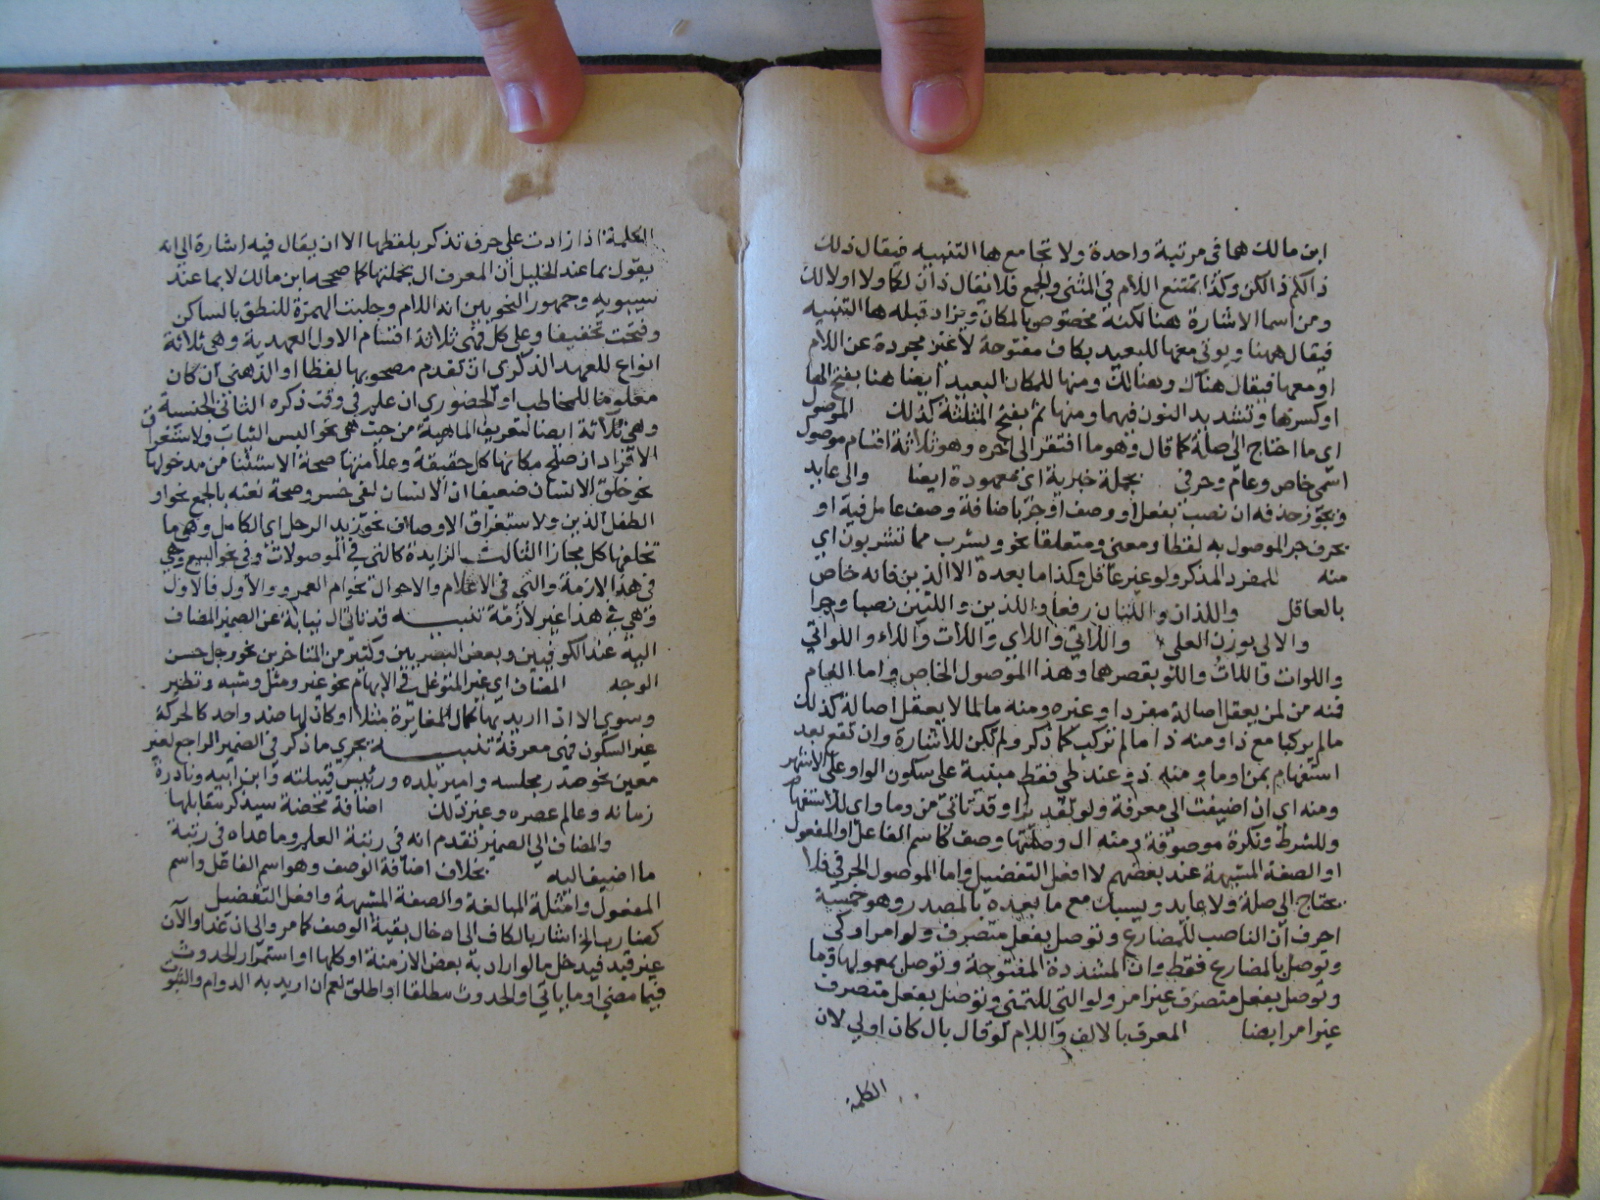 ابن مالك هما في مرتبة واحدة ولا تجامع ها التنبيه فيقال ذلك
ذالكم ذالكن وكذا تمتنع اللام في المثنى والجمع فلا تقال ذان لكما ولا اولالك
ومن اسما الاشارة هنا لكنه مختص بالمكان ويزاد قبله ها التنبيه
فيقال ههنا ويوتى معها للبعيد بكاف مفتوحة لا غير مجردة عن اللام
او معها فيقال هناك وهنالك ومنها للمكان البعيد ايضا هنا بفتح الها
او كسرها وتشديد النون فيهما ومنها ثم بفتح المثلثة كذلك الموصول
اي ما احتاج الى صلة كما قال وهو ما افتقر الى اخره وهو ثلاثة اقسام موصول
اسمي خاص وعام وحرفي بجملة خبرية اي معهودة ايضا والى عايد
ويجوز حذفه ان نصب بفعل او وصف او جر باضافة وصف عامل فيه او
بحرف جر الموصول به لفظا ومعنى ومتعلقا نحو ويشرب مما تشربون اي
منه للمفرد المذكر ولو غير عاقل وكذا ما بعده الا الذين فانه خاص
بالعاقل واللذان واللتان رفعا واللذين واللتين نصبا وجرا
والالى بوزن العلى واللائي واللاي واللات واللاء واللواتي
واللوات واللات واللو بقصرهما وهذا الموصول الخاص واما العام
فمنه من لمن يعقل اصالة مفردا او غيره ومنه ما لما لا يعقل اصالة كذلك
ما لم يركبا مع ذا ومنه ذا ما لم تركب كما ذكر ولم تكن للاشارة وان تقع بعد
استفهام بمن او ما ومنه ذو عند طي فقط مبنية على سكون الواو على الاشهر
ومنه اي ان اضيفت الى معرفة ولو تقديرا وقد تاتي من وما واي للاستفهام
وللشرط ونكرة موصوفة ومنه ال وصلتها وصف كاسم الفاعل او المفعول
او الصفة المشبهة عند بعضهم لا افعل التفضيل واما الموصول الحرفي فلا
يحتاج الى صلة ولا عايد ويسبك مع ما بعده بالمصدر وهو خمسة
احرف ان الناصب للمضارع وتوصل بفعل متصرف ولو امر او كي
وتوصل بالمضارع فقط وان المشددة المفتوحة وتوصل بمعموليها وما
وتوصل بفعل متصرف غير امر ولو التي للتمني وتوصل بفعل متصرف
غير امر ايضا المعرف بالالف واللام لو قال بال كان اولى لان
الكلمة
الكلمة اذا زادت على حرف تذكر بلفظها الا ان يقال فيه اشارة الى انه
يقول بما عند الخليل ان المعرف ال بجملتها كما صححه ابن مالك لا بما عند
سيبويه وجمهور النحويين انه اللام وجلبت الهمزة للنطق بالساكن
وفتحت تخفيفا وعلى كل فهي ثلاثة اقسام الاول العهدية وهي ثلاثة
انواع للعهد الذكري ان تقدم مصحوبها لفظا او الذهني ان كان
معلوما للمخاطب او الحضوري ان علم في وقت ذكره الثاني الجنسية
وهي ثلاثة ايضا لتعريف الماهية من حيث هي نحو البس الثياب ولاستغراق
الافراد ان صلح مكانها كل حقيقة وعلامتها صحة الاستثنا من مدخولها
نحو خلق الانسان ضعيفا ان الانسان لفي خسر وصحة نعته بالجمع نحو او
الطفل الذين ولاستغراق الاوصاف نحو زيد الرجل اي الكامل وهي ما
تخلفها كل مجازا الثالث الزايدة كالتي في الموصولات وفي نحو اليسع وهي
في هذا لازمة والتي في الاعلام والاحوال نحو ام العمرو والاول فالاول
وهي في هذا غير لازمة تنبيه قد تاتي ال نيابة عن الضمير المضاف
اليه عند الكوفيين وبعض البصريين وكثير من المتاخرين نحو رجل حسن
الوجه المضاف اي غير المتوغل في الابهام نحو غير ومثل وشبه ونظير
وسوى الا اذا اريد بها كمال المغايرة مثلا او كان لها ضد واحد كالحركة
غير السكون فهي معرفة تنبيه يجري ما ذكر في الضمير الراجع لغير
معين نحو صدر مجلسه وامير بلده ورئيس قبيلته وابن ابيه ونادرة
زمانه وعالم عصره وغير ذلك اضافة محضة سيذكر مقابلها
والمضاف الى الضمير تقدم انه في رتبة العلم وما عداه في رتبة
ما اضيف اليه بخلاف اضافة الوصف وهو اسم الفاعل واسم
المفعول وامثلة المبالغة والصفة المشبهة وافعل التفضيل
كضارب الخ اشار بالكاف الى ادخال بقية الوصف كما مر والى ان غدا والآن
غير قيد فيدخل ما لو اراد به بعض الازمنة او كلها او استمرار الحدوث
فيما مضى او ما ياتي او الحدوث مطلقا او اطلق نعم ان اريد به الدوام والثبوت